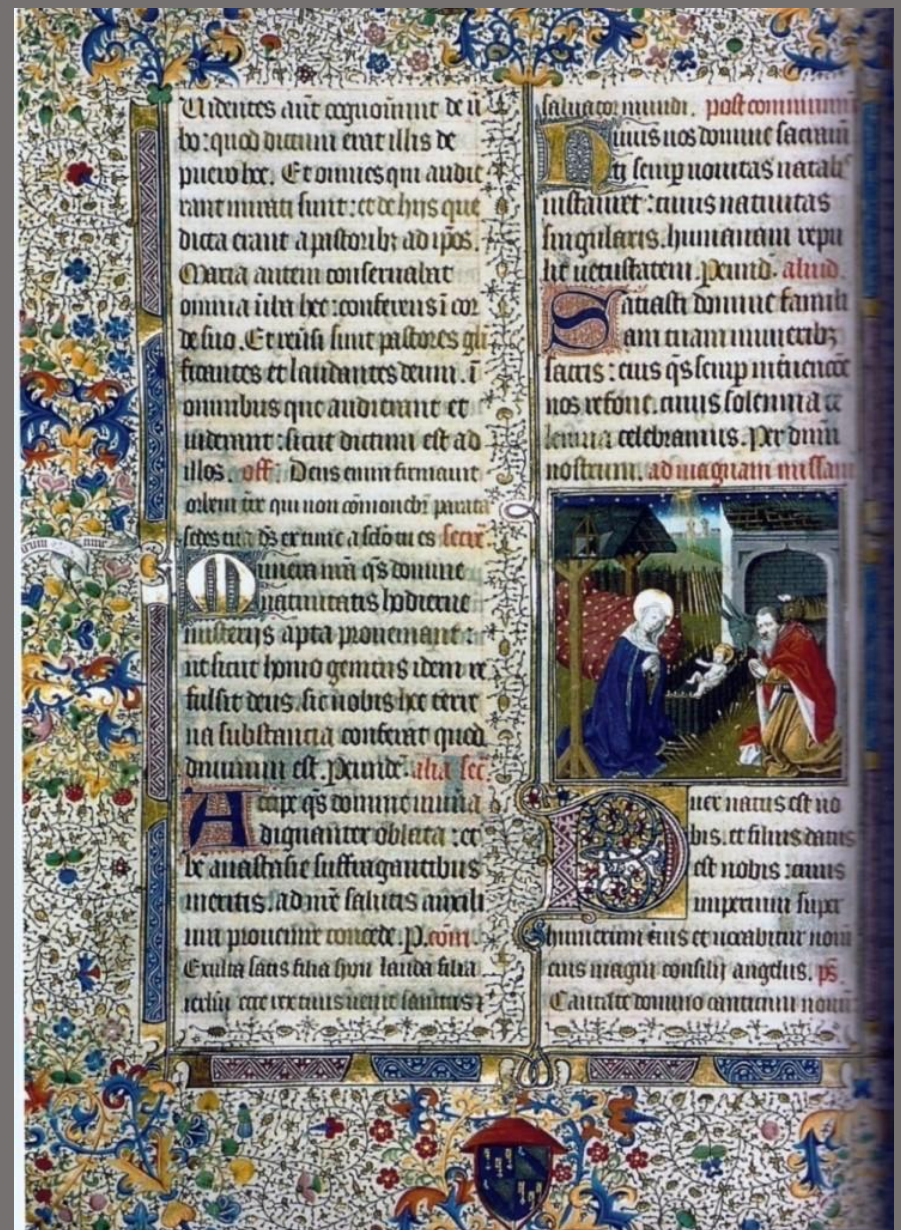 Videntes aut cognouerunt de u
bo: quod dictum erat illis de
puero hoc. Et omnes qui audie
rant mirati sunt: et de hijs que
dicta erant a pastoribz ad ipos.
Maria autem conseruabat
omnia uba hec: conferens i cor
de suo. Et reusi sunt pastores glī
ficantes et laudantes deum. i
omnibus que audierant et
uiderant: sicut dictum est ad
illos. off. Deus enim firmauit
orbem tre qui non comouebr parata
sedes tua ds ex tunc a sclo tu es secre
Munera nra qs domine
natiuitatis hodierne
misterijs apta proueniant:
ut sicut homo genitus idem re
fulsit deus. sic nobis hec terre
na substancia conferat quod
diuinum est. Peund. alia sec.
Accipe qs domine munera
dignanter oblata: et
be anastasie suffragantibus
meritis. ad nre salutis auxili
um prouenire concede. P. com.
Exulta satis filia syon lauda filia
ierlm ecce rex tuus uenit sanctus z
saluator mundi. post commun
Huius nos domine sacram
ti semp nouitas natal
instauret: cuius natiuitas
singularis. humanam repu
lit uetustatem. Peund. aliud.
Saciasti domine famili
am tuam muneribz
sacris: eius qs semp interuencoe
nos refoue. cuius solennia ce
lebramus. Per dnm
nostrum. ad magnam missam
Puer natus est no
bis. et filius datus
est nobis: cuius
imperium super
humerum eius et uocabitur nom
eius magni consilij angelus. ps.
Cantate domino canticum nouu